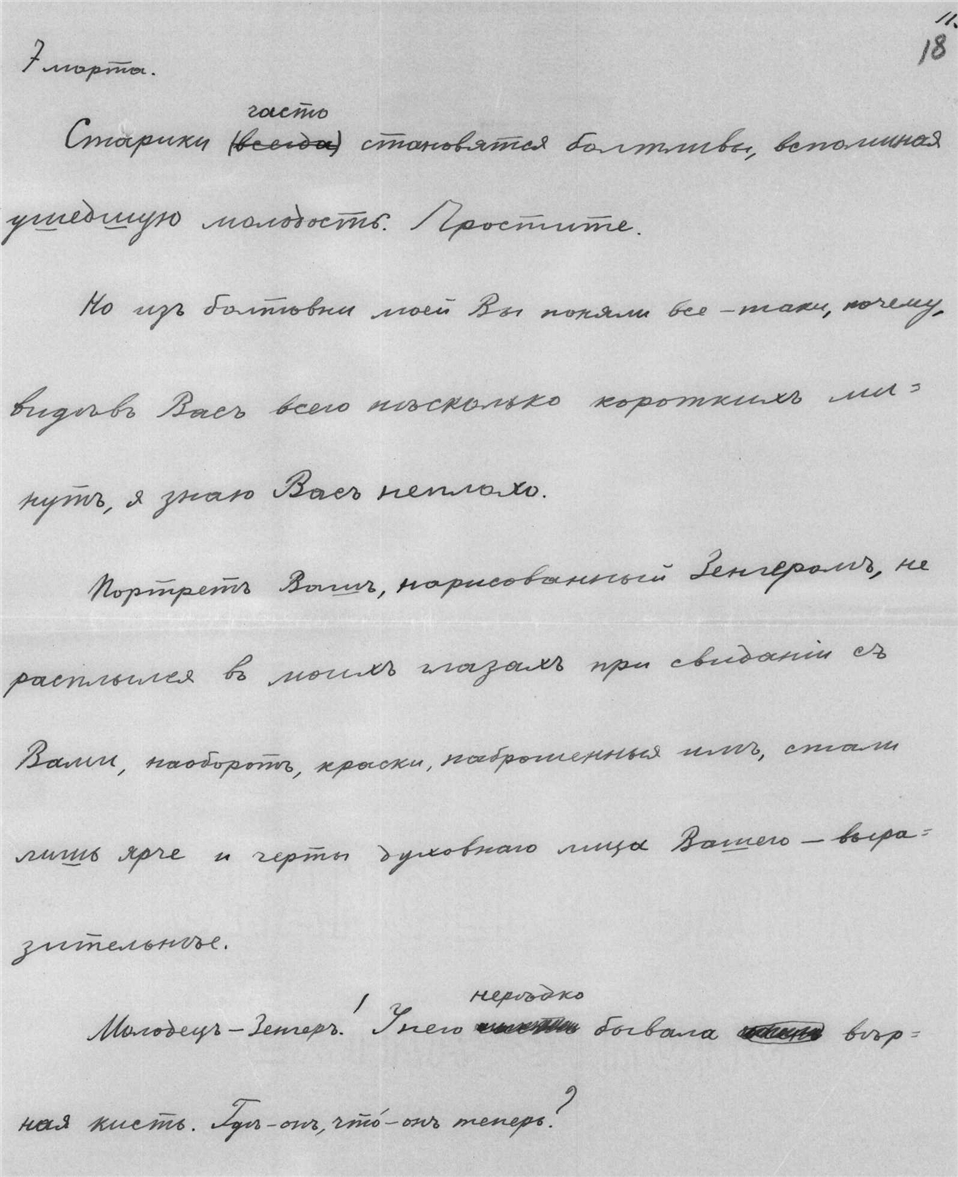 11.
18
7 марта.
часто
Старики (всегда) становятся болтливы, вспоминая
ушедшую молодость. Простите.
Но изъ болтовни моей Вы поняли все-таки, почему,
видѣвъ Васъ всего нѣсколько короткихъ ми=
нутъ, я знаю Васъ неплохо.
Портретъ Вашъ, нарисованный Зенгеромъ, не
расплылся въ моихъ глазахъ при свиданіи съ
Вами, наоборотъ, краски, наброшенныя имъ, стали
лишь ярче и черты духовнаго лица Вашего – выра=
зительнѣе.
нерѣдко
Молодецъ – Зенгеръ! У него бывала вѣр=
ная кисть. Гдѣ-онъ, что́-онъ теперь?